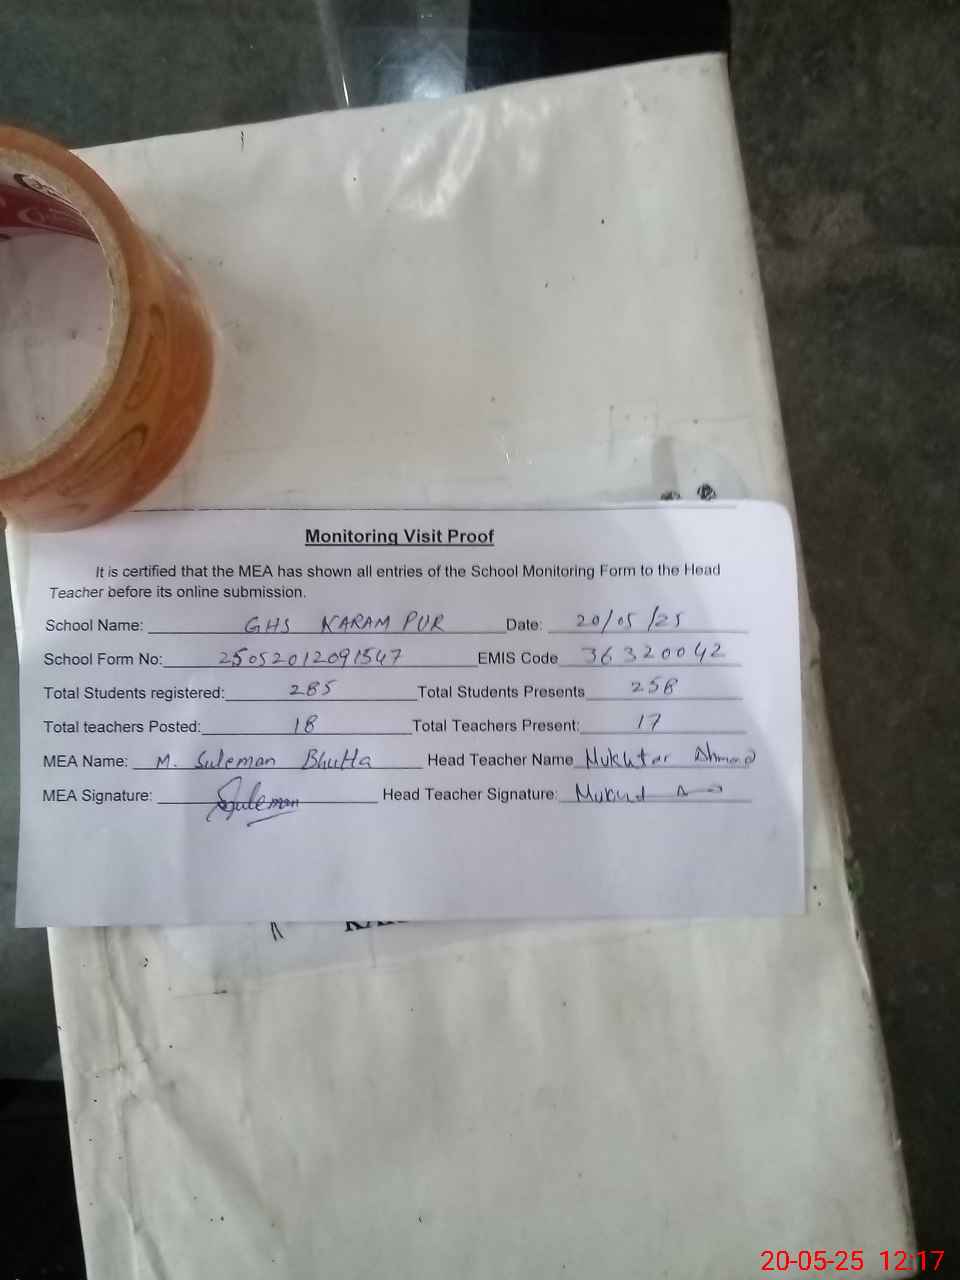 Monitoring Visit Proof
It is certified that the MEA has shown all entries of the School Monitoring Form to the Head
Teacher before its online submission.
School Name: GHS KARAM PUR Date: 20/05/25
School Form No: 25052012091547 EMIS Code 36320042
Total Students registered: 285 Total Students Presents 258
Total teachers Posted: 18 Total Teachers Present: 17
MEA Name: M. Suleman Bhutta Head Teacher Name Mukhtar Ahmad
MEA Signature: Suleman Head Teacher Signature:
20-05-25 12:17